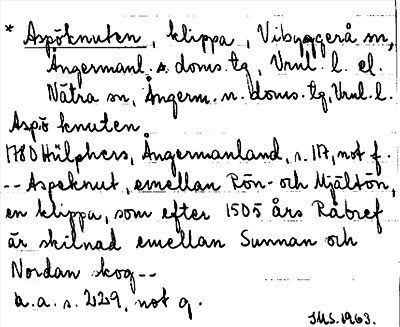 * Aspöknuten, klippa, Vibyggerå sn,
Ångermanl. s. doms. tg, Vnl. l. el.
Nätra sn, Ångerm. n. doms. tg, Vnl. l.
Aspö knuten
1780 Hülphers, Ångermanland, s. 117, not f.
-- Aspeknut, emellan Rön- och Mjältön,
en klippa, som efter 1505 års Råbref
är skilnad emellan Sunnan och
Nordan skog --
a.a. s. 229, not q.
JMS. 1963.